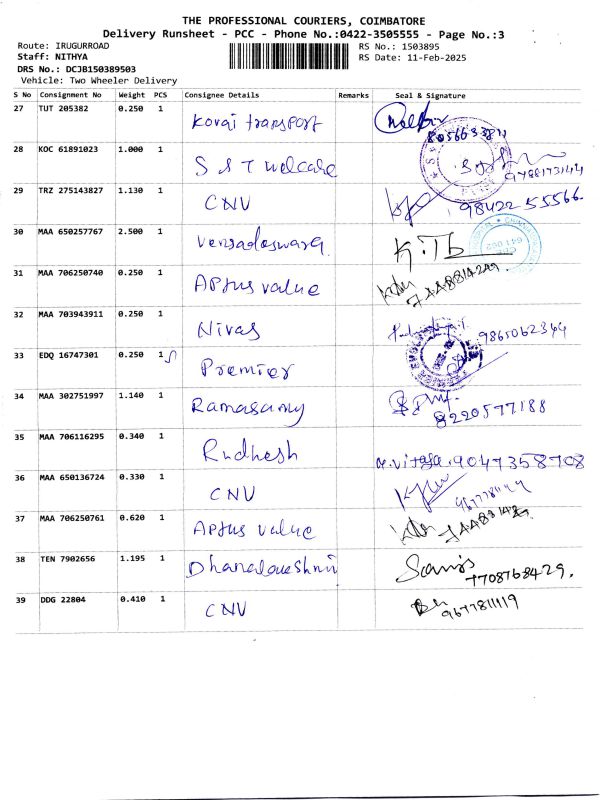 THE PROFESSIONAL COURIERS, COIMBATORE
Delivery Runsheet - PCC - Phone No.:0422-3505555 - Page No.:3
Route: IRUGURROAD
RS No.: 1503895
Staff: NITHYA
RS Date: 11-Feb-2025
DRS No.: DCJB150389503
Vehicle: Two Wheeler Delivery
S No Consignment No Weight PCS Consignee Details Remarks Seal & Signature
27 TUT 205382 0.250 1 Kovai transport
28 KOC 61891023 1.000 1 S S T welcare
29 TRZ 275143827 1.130 1 CNV 98422 55566.
30 MAA 650257767 2.500 1 K.Tb
31 MAA 706250740 0.250 1 Aptus value
32 MAA 703943911 0.250 1 Nivas 9865062344
33 EDQ 16747301 0.250 1 Premier
34 MAA 302751997 1.140 1 Ramasamy 8220577188
35 MAA 706116295 0.340 1 Rudhesh 9047358708
36 MAA 650136724 0.330 1 CNV
37 MAA 706250761 0.620 1 Aptus value
38 TEN 7902656 1.195 1 Dhanalaueshmi 7708768429.
39 DDG 22804 0.410 1 CNV 9677811119